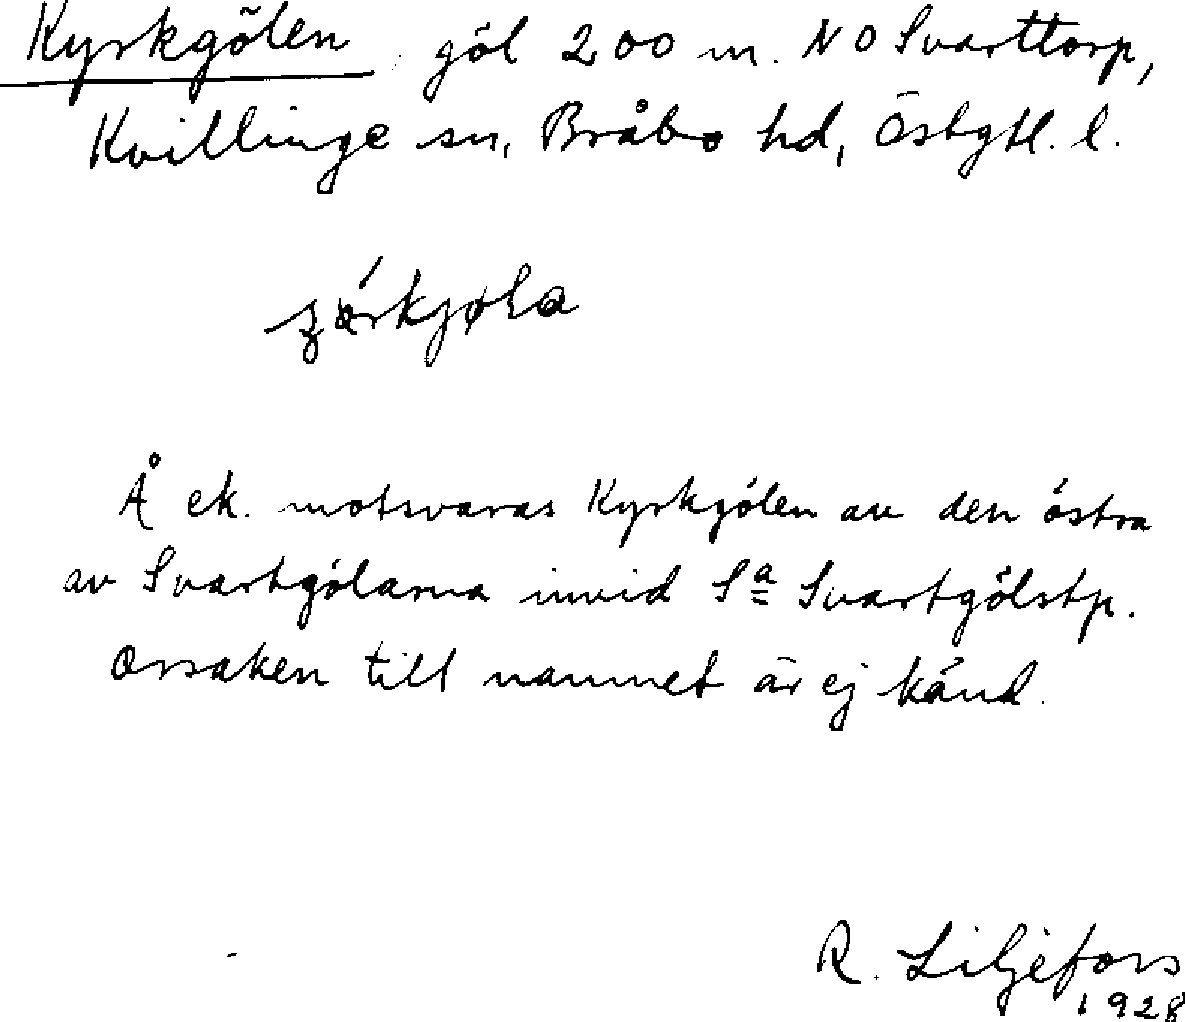 Kyrkgölen göl 200 m. NO Svarttorp,
Kvillinge sn, Bråbo hd, Östgtl. l.
Å ek. motsvaras Kyrkgölen av den östra
av Svartgölarna invid Sa Svartgölstp.
Orsaken till namnet är ej känd.
R. Liljefors
1928